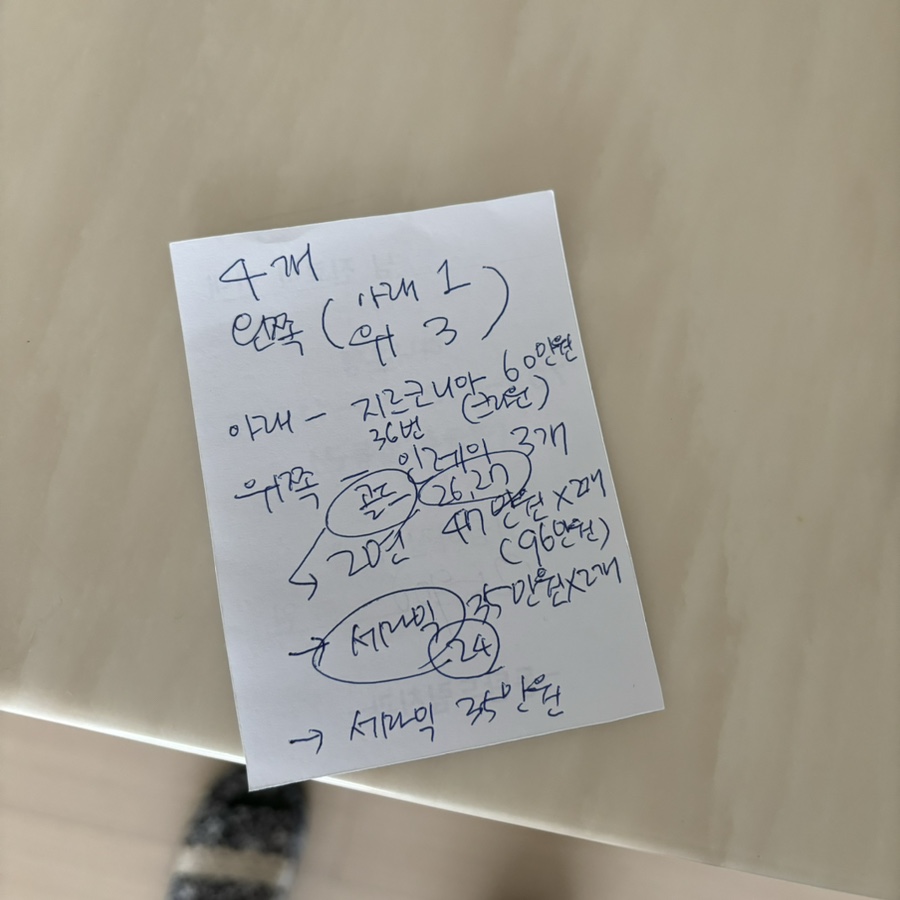 4개
왼쪽 (아래 1
위 3)
아래 - 지르코니아 60만원
36번 (크라운)
위쪽 - 인레이 3개
골드 26, 27
→ 20년 47만원 x 2개
(96만원)
→ 세라믹 35만원 x 2개
24
→ 세라믹 35만원